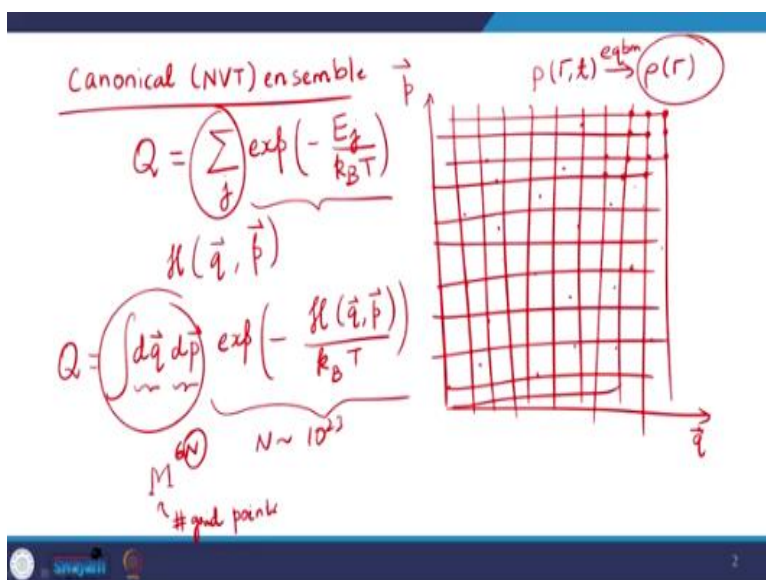 Canonical (NVT) ensemble
Q = ∑_j exp(- E_j / k_B T)
H(q⃗, p⃗)
Q = ∫ dq⃗ dp⃗ exp(- H(q⃗, p⃗) / k_B T)
N ~ 10^23
M^6N
# grid points
ρ(Γ, t) eqbm → ρ(Γ)
p⃗
q⃗
swayam
2